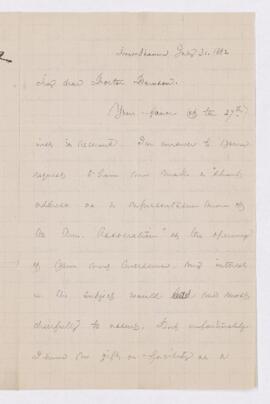 July 31, 1882
My dear Doctor Dawson:
Your favor of the 27th
inst. is received. In answer to your
request to have me make a "short
address as a representative man of
the Am. Association" at the opening
of your
in the subject would lead me most
cheerfully to assent. But unfortunately
I have no gift or facility as a